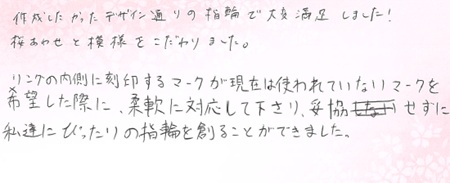 作成したかったデザイン通りの指輪で大変満足しました!
桜あわせと模様をこだわりました。
リングの内側に刻印するマークが現在は使われていないマークを
希望した際に、柔軟に対応して下さり、妥協せずに
私達にぴったりの指輪を創ることができました。